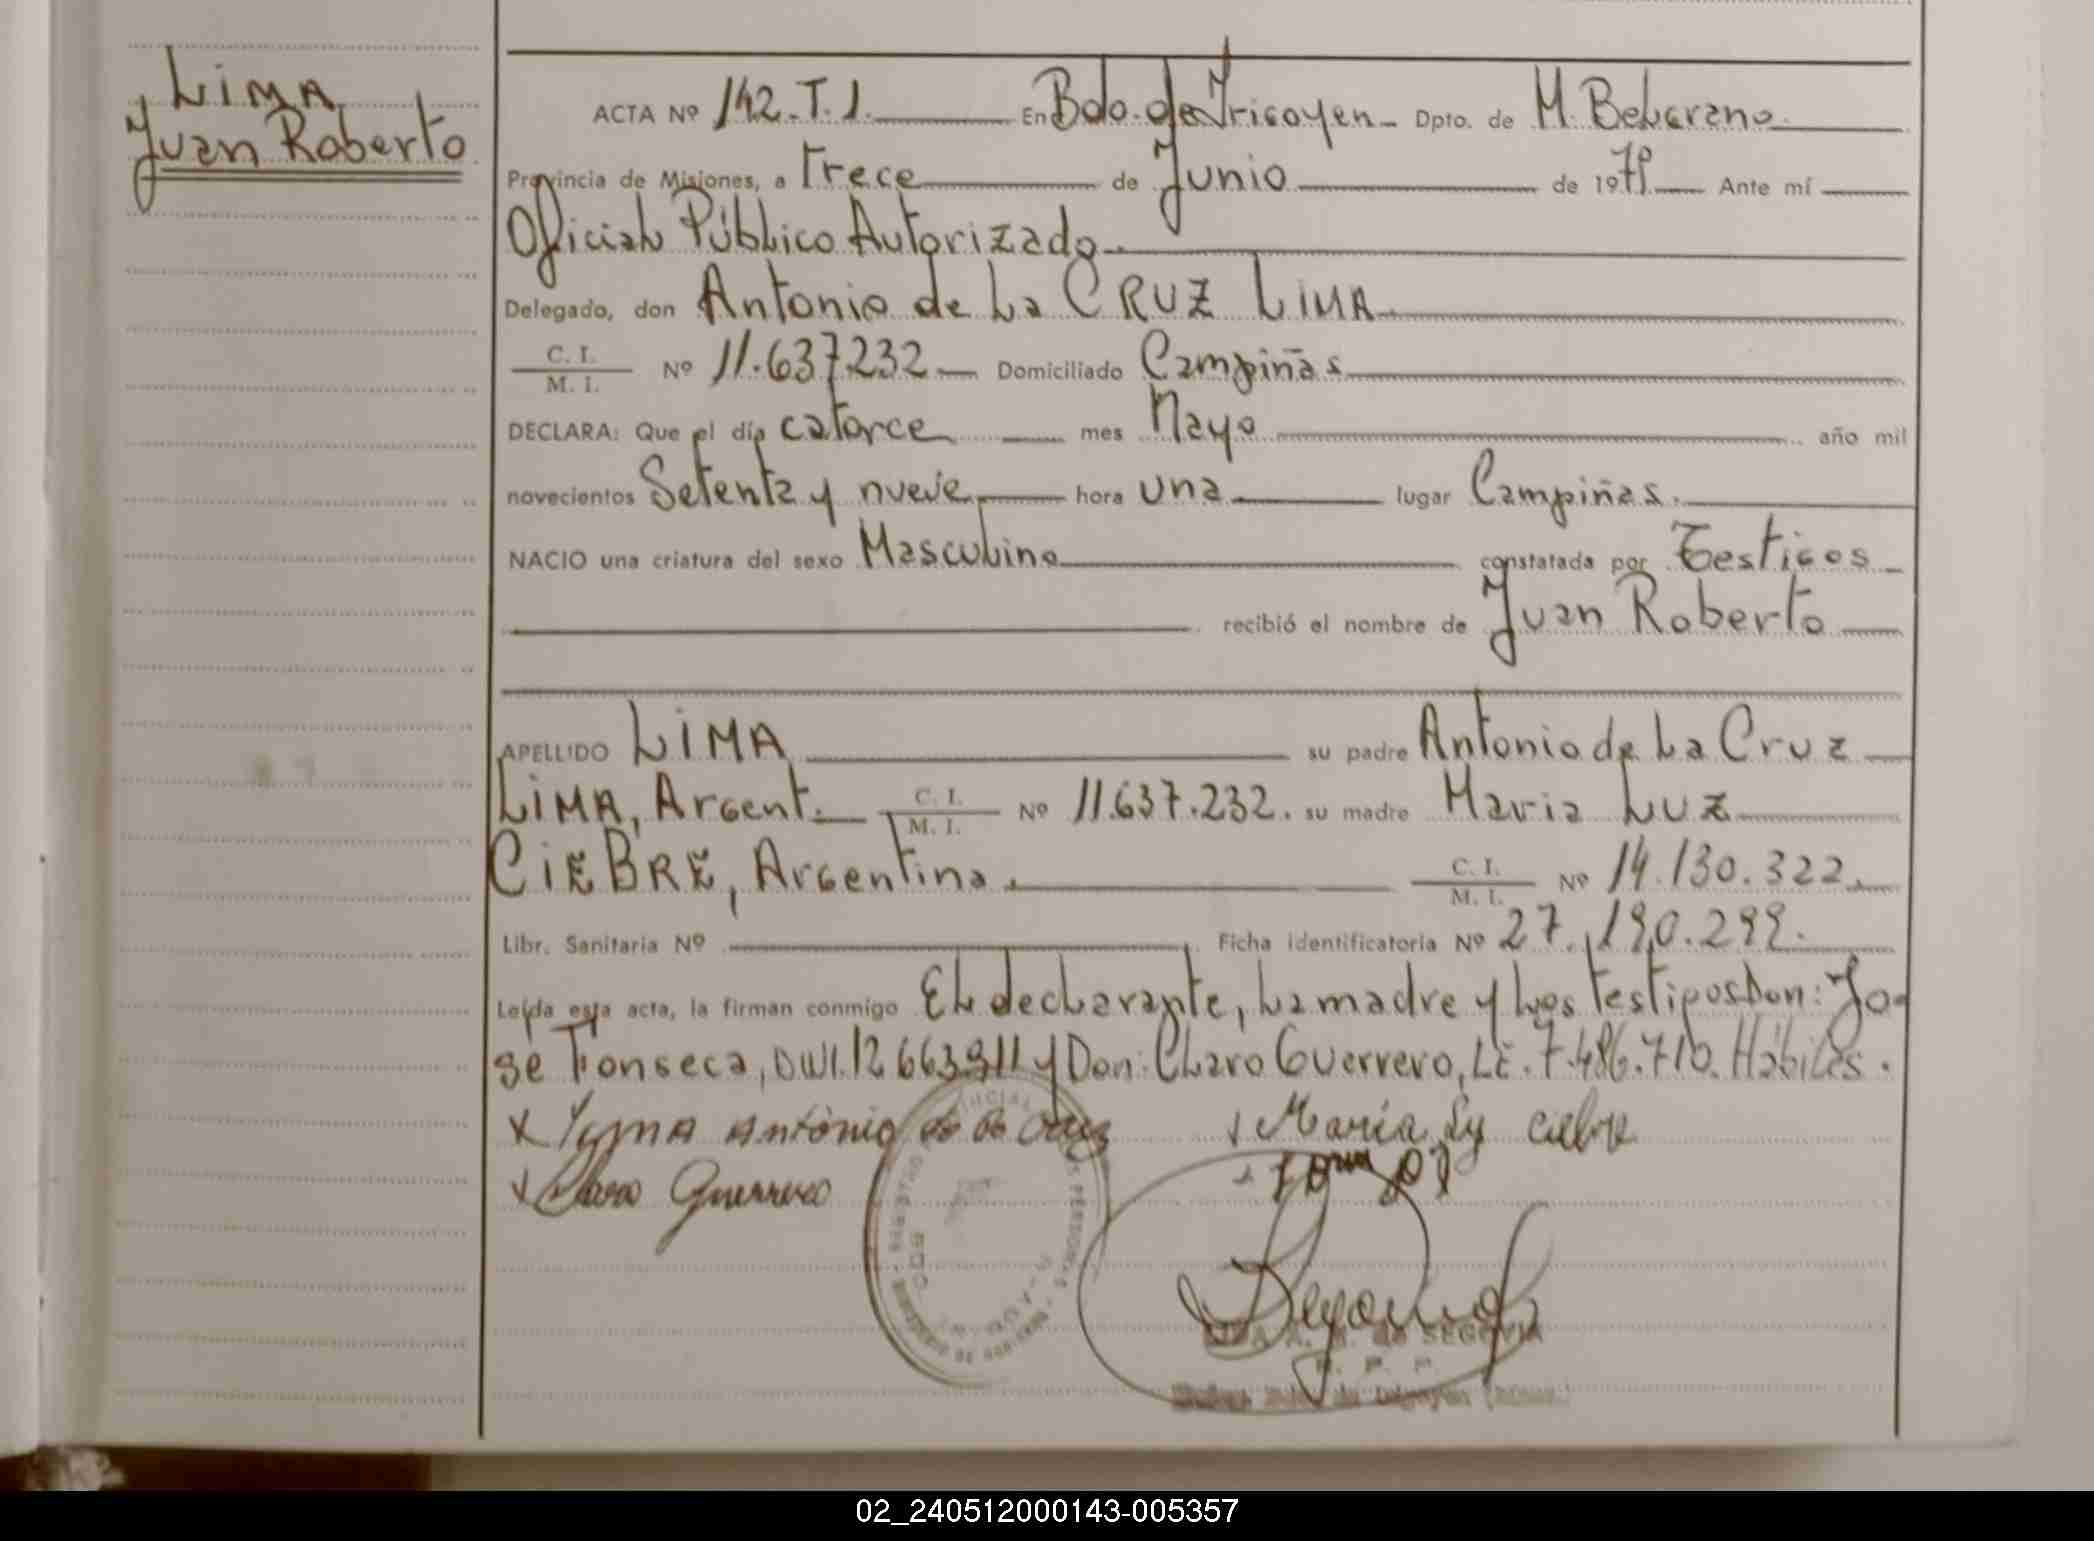 LIMA
Juan Roberto
ACTA Nº 142.T.1. En Bdo. de Irigoyen Dpto. de M. Belgrano
Provincia de Misiones, a Trece de Junio de 1979 Ante mí
Oficial Público Autorizado
Delegado, don Antonio de La CRUZ LIMA
C. I.
M. I. Nº 11.637.232 Domiciliado Campiñas
DECLARA: Que el día catorce mes Mayo año mil
novecientos Setenta y nueve hora una lugar Campiñas.
NACIO una criatura del sexo Masculino constatada por Testigos
recibió el nombre de Juan Roberto
APELLIDO LIMA su padre Antonio de La Cruz
LIMA, Argent. C. I. M. I. Nº 11.637.232. su madre Maria Luz
CIEBRE, Argentina C. I. M. I. Nº 14.130.322.
Libr. Sanitaria Nº Ficha identificatoria Nº 27.190.299.
Leída esta acta, la firman conmigo El declarante, La madre y Los testigos Don: Jo-
se Fonseca, DNI. 12.663.911 y Don: Claro Guerrero, LE. 7.486.710. Hábiles.
María Luz ciebre
Claro Guerrero
de SEGOVIA
02_240512000143-005357